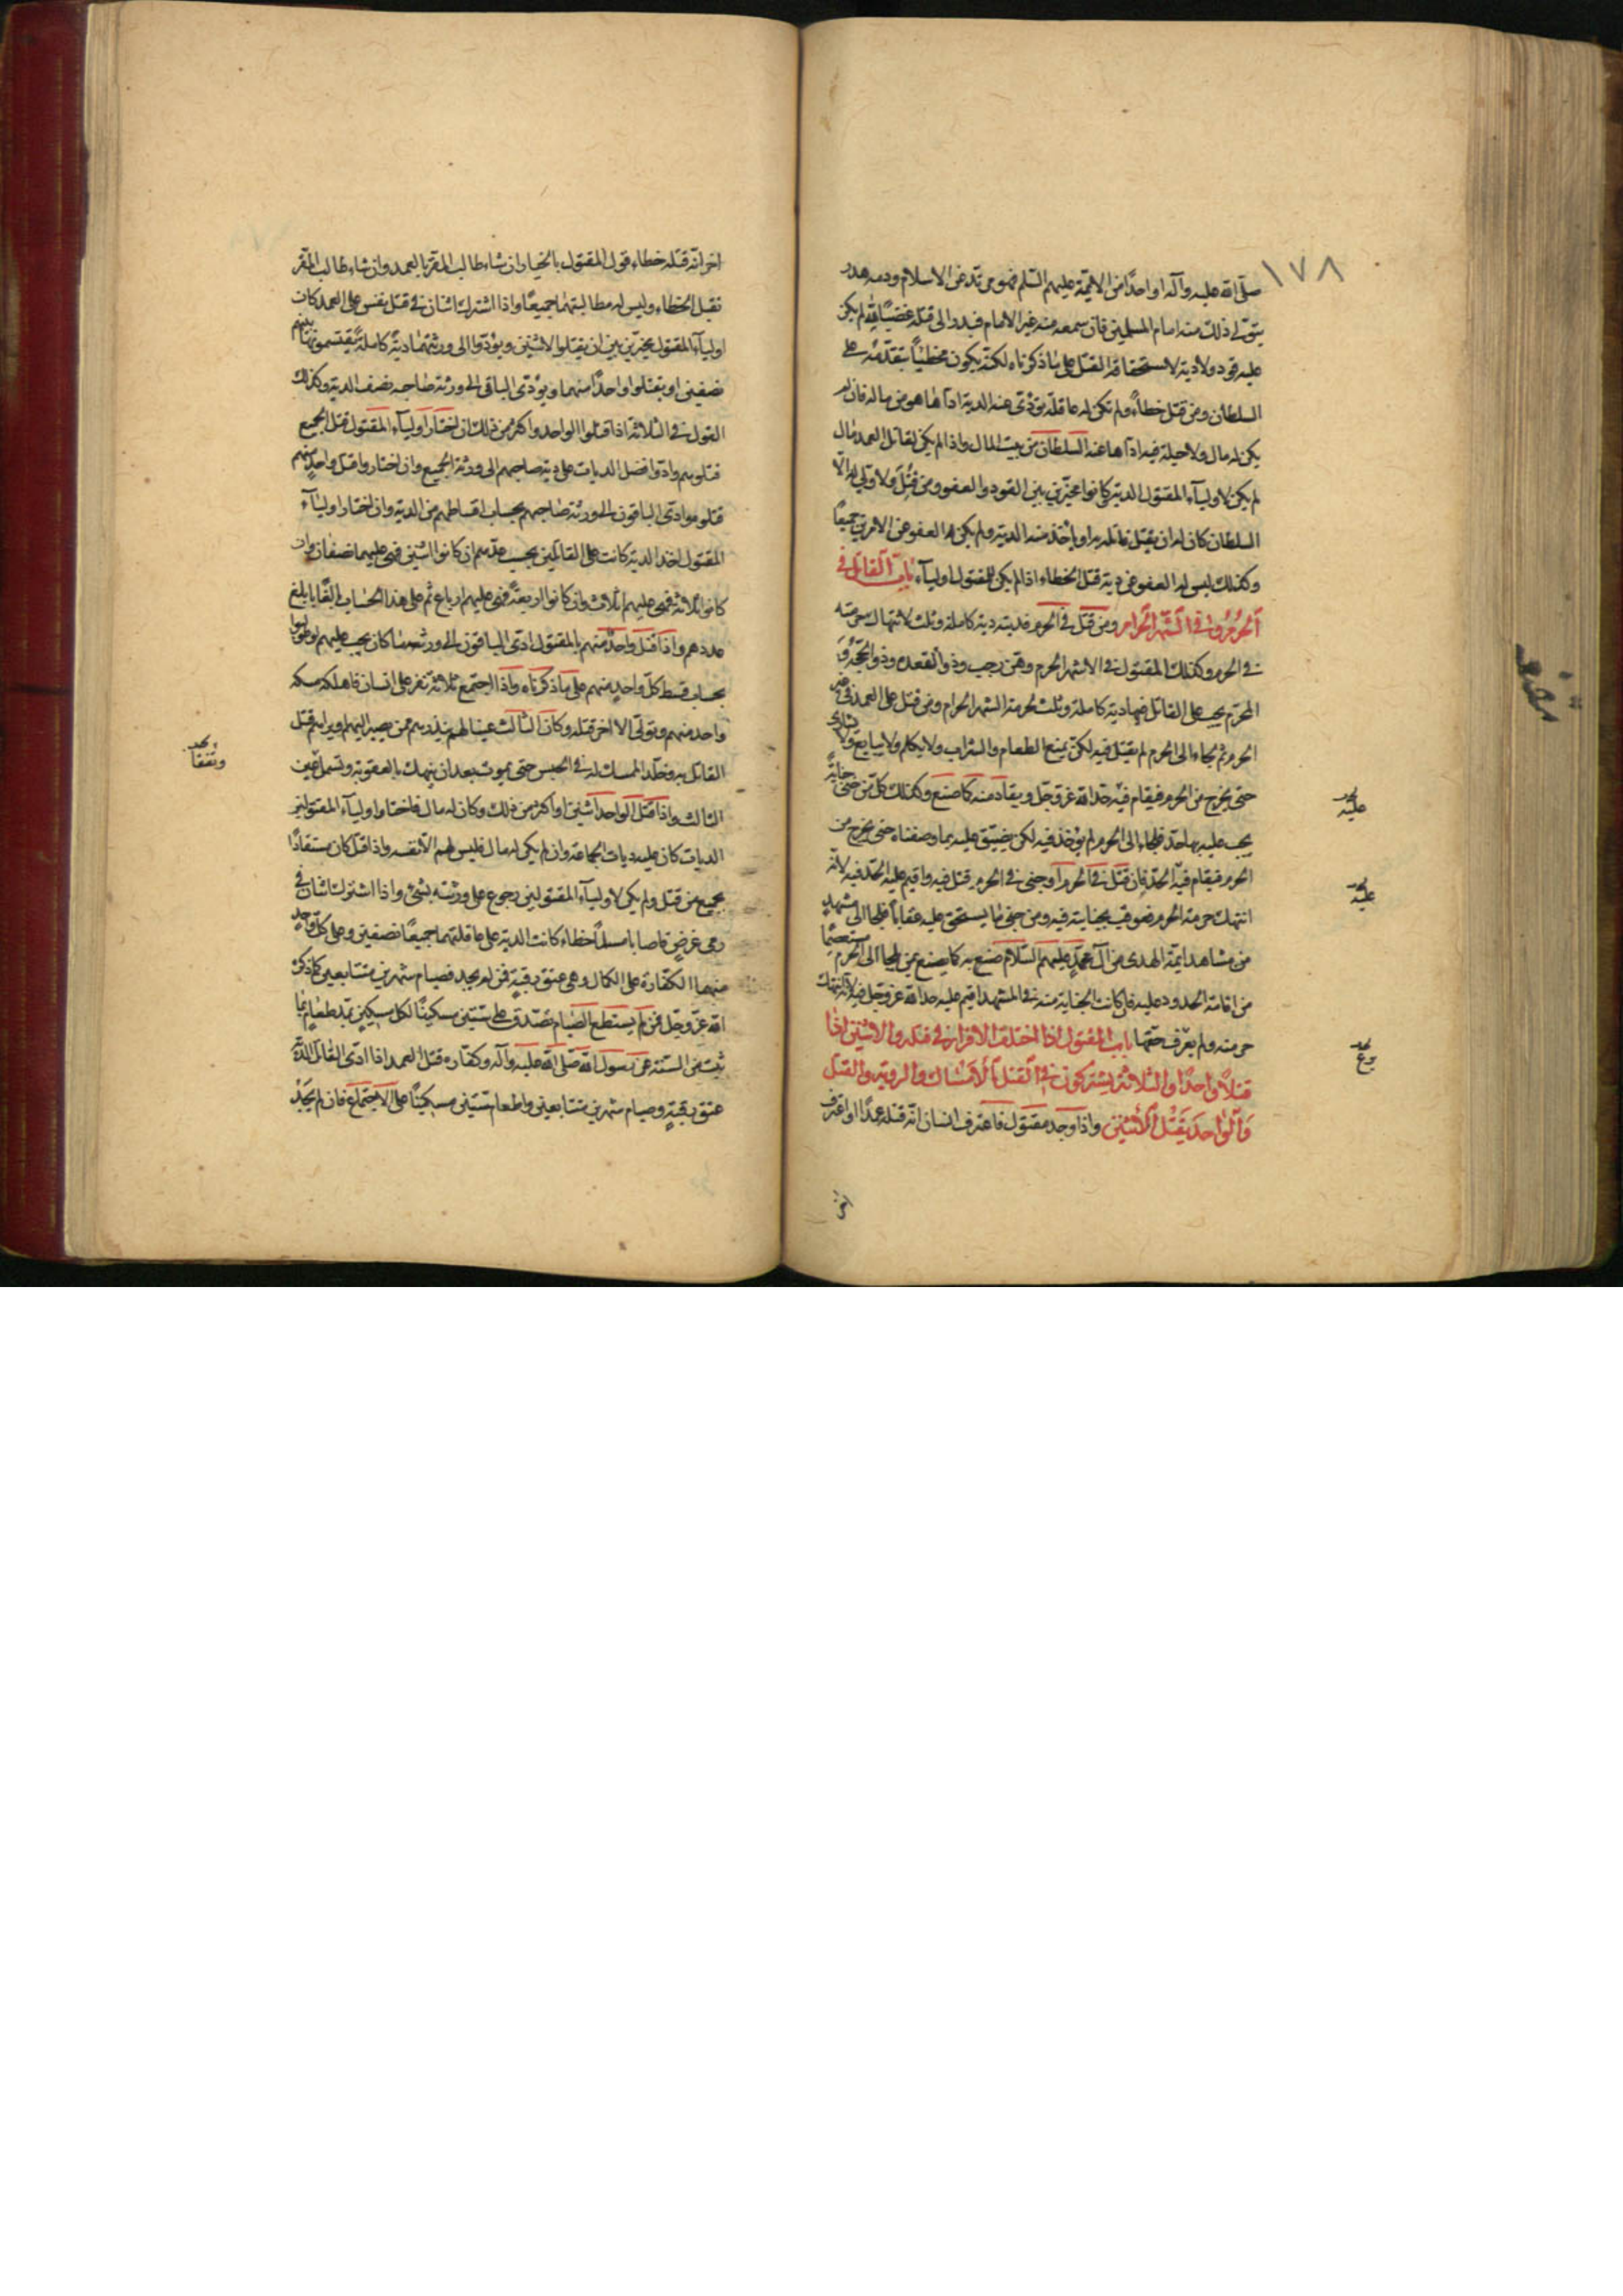 ١٧٨
صلّى الله عليه وآله او واحدًا من الائمّة عليهم السّلم فهو مرتدّ عن الاسلام ودمه هدر
يتولّى ذلك منه امام المسلمين فان سمعه منه غير الامام فبدر الى قتله غضبًا لله لم يكن
عليه قود ولا دية لاستحقاقه القتل على ما ذكرناه لكنّه يكون مخطئًا بتقدّمه على
السلطان ومن قتل خطاءً ولم تكن له عاقلة يؤدّى عنه الدية ادّاها هو من ماله فان لم
يكن له مال ولا حيلة فيه ادّاها عنه السلطان من بيت المال واذا لم يكن لقاتل العمد مال
لم يكن لاولياء المقتول الدية كانوا مخيّرين بين القود والعفو ومن قُتِلَ ولا وليّ له الّا
السلطان كان له ان يقتل قاتله به او ياخذ منه الدية ولم يكن له العفو عن الامرين جميعًا
وكذلك ليس له العفو عن دية قتل الخطاء اذا لم يكن للمقتول اولياء باب القاتل في
الحرم وفي الشهر الحرام ومن قتل في الحرم فديته دية كاملة وثلث لانتهاك حرمته
في الحرم وكذلك المقتول في الاشهر الحرم وهي رجب وذو القعدة وذو الحجّة و
المحرّم يجب على القاتل فيها دية كاملة وثلث لحرمة الشهر الحرام ومن قتل على العمد في غير
الحرم ثم لجاء الى الحرم لم يقتل فيه لكن يمنع الطعام والشراب ولا يكلم ولا يبايع ولا يشارى
حتى يخرج من الحرم فيقام فيه حدّ الله عزّ وجل ويقاد منه كما صنع وكذلك كلّ من جنى جناية
يجب عليه بها حدّ فلجاء الى الحرم لم يؤخذ فيه لكن يضيّق عليه بما وصفناه حتى يخرج من
الحرم فيقام فيه الحدّ فان قتل في الحرم او جنى في الحرم قتل فيه واقيم عليه الحدّ فيه لانّه
انتهك حرمة الحرم فعوقب بجنايته فيه ومن جنى ما يستحق عليه عقابًا فلجا الى مشهدٍ
من مشاهد ايمّة الهدى من آل محمّد عليهم السّلام صنع به كما يصنع بمن لجا الى الحرم مستعصمًا
من اقامة الحدود عليه فان كانت الجناية منه في المشهد اقيم عليه حدّ الله عزّ وجل فيه لانّه انتهك
حرمته ولم يعرف حقّها باب المقتول اذا اختلف الاقرار في قتله والاثنين اذا
قتلا واحدًا والثلاثة يشتركون في القتل بالامساك والروية والقتل
والواحد يقتل الاثنين واذا وجد مقتول فاعترف انسان انّه قتله عمدًا واعترف
عليه
عليه
اخر
اخر انّه قتله خطاء فولي المقتول بالخيار ان شاء طالب المقرّ بالعمد وان شاء طالب المقرّ
بقتل الخطاء وليس له مطالبتهما جميعًا واذا اشترك اثنان في قتل نفس على العمد كان
اولياء المقتول مخيّرين بين ان يقتلوا الاثنين ويؤدّوا الى ورثتهما دية كاملة يقتسمونها بينهم
نصفين او يقتلوا واحدًا منهما ويؤدّى الباقي الى ورثة صاحبه نصف الدية وكذلك
القول في الثلاثة اذا قتلوا الواحد واكثر من ذلك ان اختار اولياء المقتول قتل الجميع
قتلوهم وادّوا فضل الديات على دية صاحبهم الى ورثة الجميع وان اختاروا قتل واحدٍ منهم
قتلوه وادّى الباقون الى ورثة صاحبهم بحساب اقساطهم من الدية وان اختار اولياء
المقتول اخذ الدية كانت على القاتلين بحسب عددهم ان كانوا اثنين فهي عليهما نصفان وان
كانوا ثلاثة فهي عليهم اثلاث وان كانوا اربعة فهي عليهم ارباع ثم على هذا الحساب بالغًا ما بلغ
عددهم واذا قتل واحدٌ منهم بالمقتول ادّى الباقون الى ورثته ما كان يجب عليهم
بحساب قسط كلّ واحدٍ منهم على ما ذكرناه واذا اجتمع ثلاثة نفر على انسان فاهلكه مسكه
واحد منهم وتولّى الاخر قتله وكان الثالث عينا لهم ينذرهم ممن يصير اليهم ويراهم قتل
القاتل به وخلّد الممسك له في الحبس حتى يموت بعد ان ينهك بالعقوبة وتسمل عين
الثالث واذا قتل الواحد اثنين او اكثر من ذلك وكان له مال فاختار اولياء المقتولين
الديات كان عليه ديات الجماعة وان لم يكن له مال فليس لهم الّا نفسه واذا قتل كان مستقادًا
بجميع من قتل ولم يكن لاولياء المقتولين رجوع على ورثته بشيء واذا اشترك اثنان في
رمي غرض فاصابا مسلمًا خطاء كانت الدية على عاقلتهما جميعًا نصفين وعلى كلّ واحدٍ
منهما الكفّارة على الكمال وهي عتق رقبةٍ فمن لم يجد فصيام شهرين متتابعين كما ذكره
الله عزّ وجلّ فمن لم يستطع الصّيام تصّدق على ستّين مسكينًا لكل مسكينٍ بمدّ طعام بما
ثبت من السنّة عن رسول الله صلّى الله عليه وآله وكفّارة قتل العمد اذا ادّى القاتل الدّية
عتق رقبةٍ وصيام شهرين متتابعين واطعام ستّين مسكينًا على الاجتماع فان لم يَجِدْ